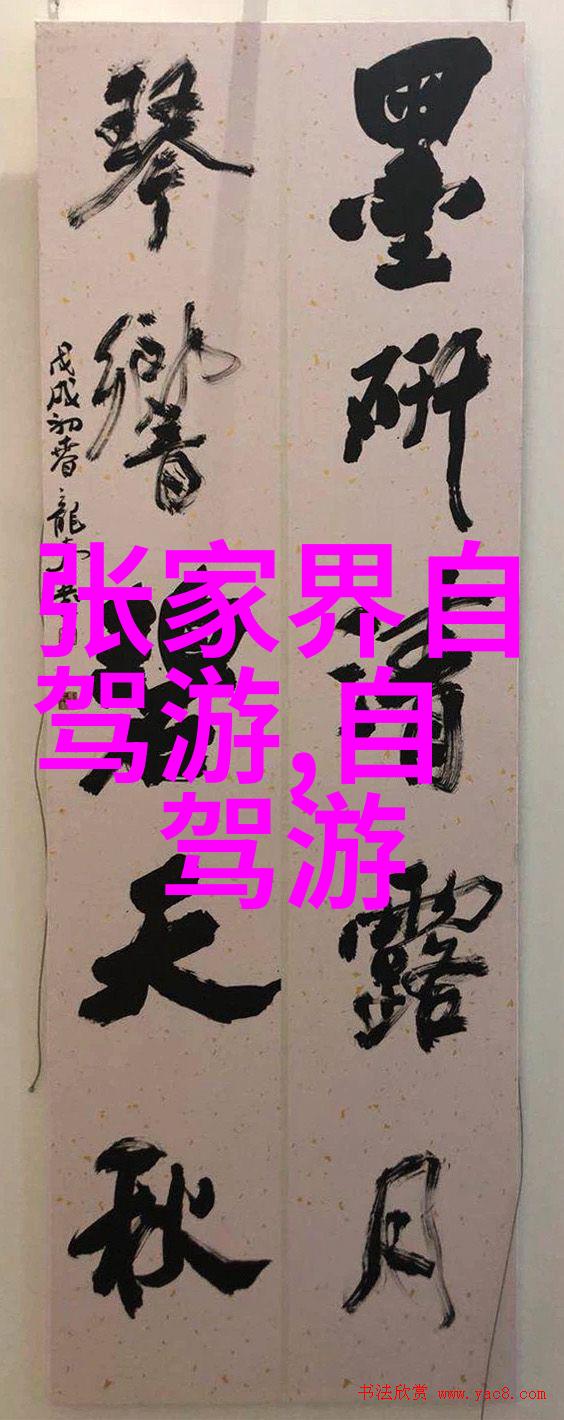 墨研清露月
琴響碧天秋
戊戌初春龍
张家界自
驾游,自
驾游
书法欣赏 www.yac8.com